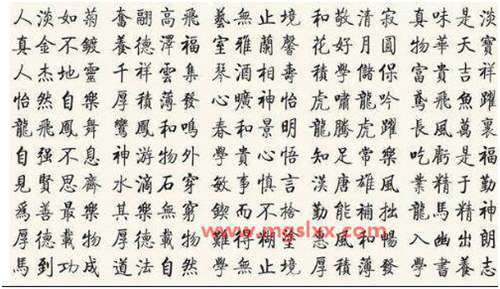 人淡如菊 奮翮高飛 藝無止境 和敬清寂 真味是淡
真金不鍍 養德澤福 室雅蘭馨 花好月圓 物華天寶
人杰地靈 千祥雲集 琴酒相壽 積學儲 富貴吉祥
怡然自樂 厚積薄發 心曠神怡 虎嘯龍吟 鳶飛魚躍
龍飛鳳舞 鸞鳳和鳴 春和景明 龍騰虎躍 長風萬裏
自强不息 神游物外 學貴心悟 知足常樂 吃虧是福
見賢思齊 水滴石穿 敏事慎言 漢唐雄風 業精于勤
爲善最樂 其樂無窮 鍥而不捨 勤能補拙 龍馬精神
厚德載物 厚德載物 難得糊 惠風和暢 入幽出朗
馬到功成 道法自然 學無止境 厚積薄發 學以養志
www.mgslxx.com